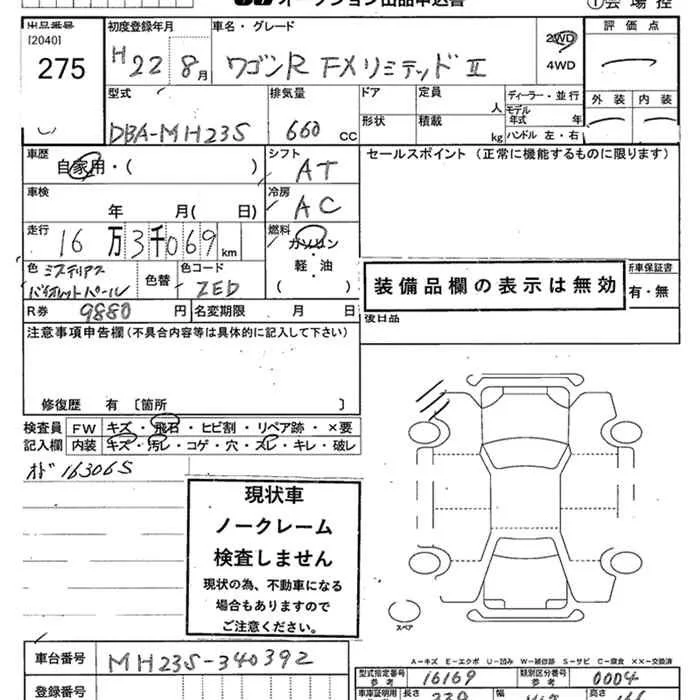 オークション出品申込書
①会場控
出品番号
[2040]
275
初度登録年月
H 22 8月
車名・グレード
ワゴンR FXリミテッドⅡ
2WD
4WD
評価点
外装 内装
型式
DBA-MH23S
排気量
660 cc
ドア
形状
定員 人
積載 kg
ディーラー・並行
モデル年式 年
ハンドル 左・右
車歴
自家用・( )
シフト
AT
セールスポイント(正常に機能するものに限ります)
車検
年 月( 日)
冷房
AC
走行
16万3千069km
燃料
ガソリン
軽・油
( )
色 ミステリアスバイオレットパール
色替
色コード
ZED
装備品欄の表示は無効
新車保証書
有・無
R券 9880円
名変期限 月 日
後日品
注意事項申告欄(不具合内容等は具体的に記入して下さい)
修復歴 有〔箇所 〕
検査員記入欄
FW キズ・飛石・ヒビ割・リペア跡・×要
内装 キズ・汚レ・コゲ・穴・スレ・キレ・破レ
現状車
ノークレーム
検査しません
現状の為、不動車になる
場合もありますので
ご注意ください。
スペア
A-キズ E-エクボ U-凹み W-補修跡 S-サビ C-腐食 ××-交換済
車台番号 MH23S-340392
型式指定番号 参考 16169
類別区分番号 参考 0004
登録番号
長さ
幅
高さ